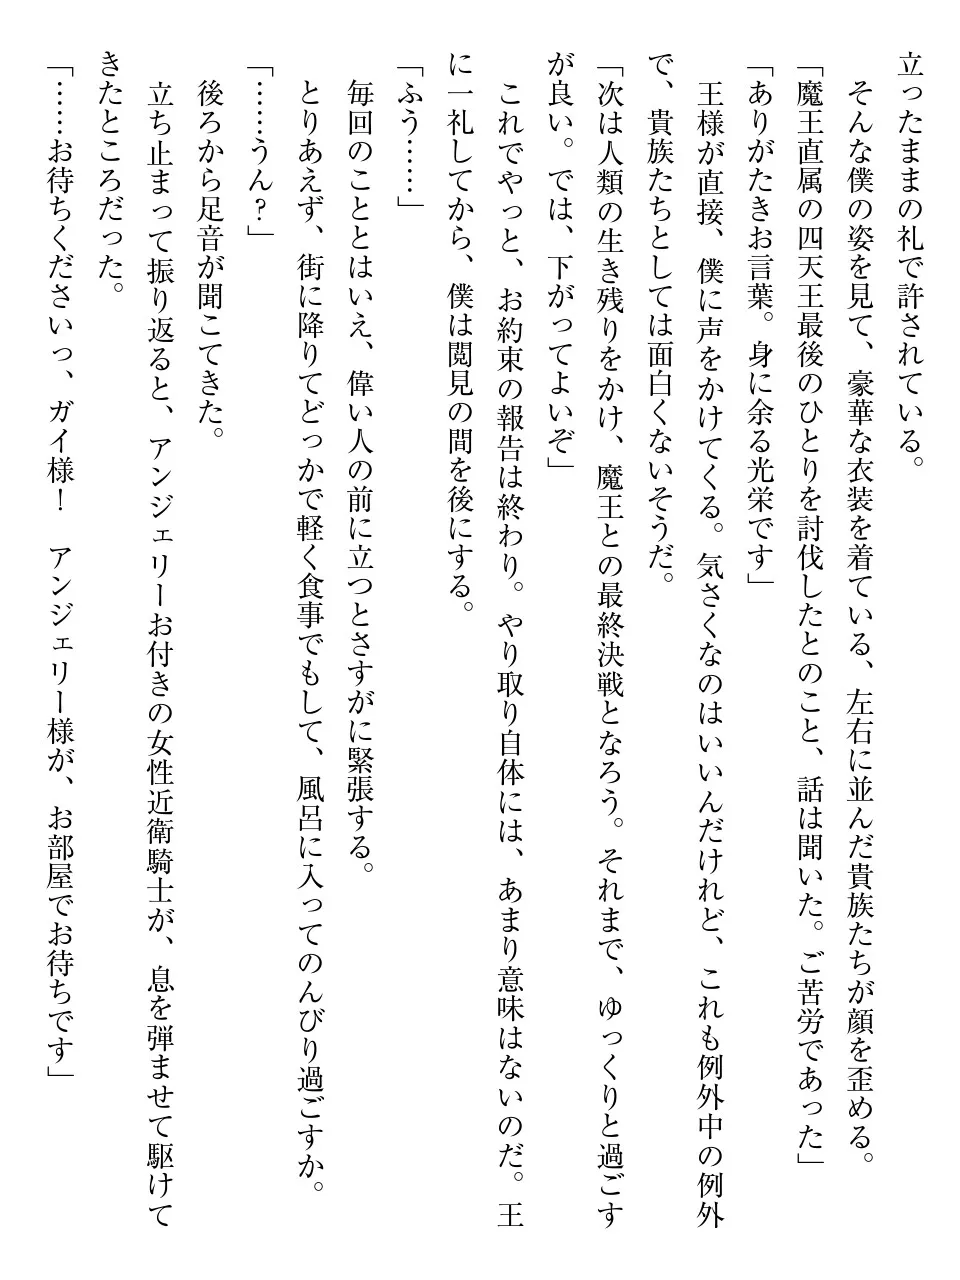 立ったままの礼で許されている。
そんな僕の姿を見て、豪華な衣装を着ている、左右に並んだ貴族たちが顔を歪める。
「魔王直属の四天王最後のひとりを討伐したとのこと、話は聞いた。ご苦労であった」
「ありがたきお言葉。身に余る光栄です」
王様が直接、僕に声をかけてくる。気さくなのはいいんだけれど、これも例外中の例外
で、貴族たちとしては面白くないそうだ。
「次は人類の生き残りをかけ、魔王との最終決戦となろう。それまで、ゆっくりと過ごす
が良い。では、下がってよいぞ」
これでやっと、お約束の報告は終わり。やり取り自体には、あまり意味はないのだ。王
に一礼してから、僕は閲見の間を後にする。
「ふう……」
毎回のこととはいえ、偉い人の前に立つとさすがに緊張する。
とりあえず、街に降りてどっかで軽く食事でもして、風呂に入ってのんびり過ごすか。
「……うん？」
後ろから足音が聞こてきた。
立ち止まって振り返ると、アンジェリーお付きの女性近衛騎士が、息を弾ませて駆けて
きたところだった。
「……お待ちくださいっ、ガイ様！　アンジェリー様が、お部屋でお待ちです」